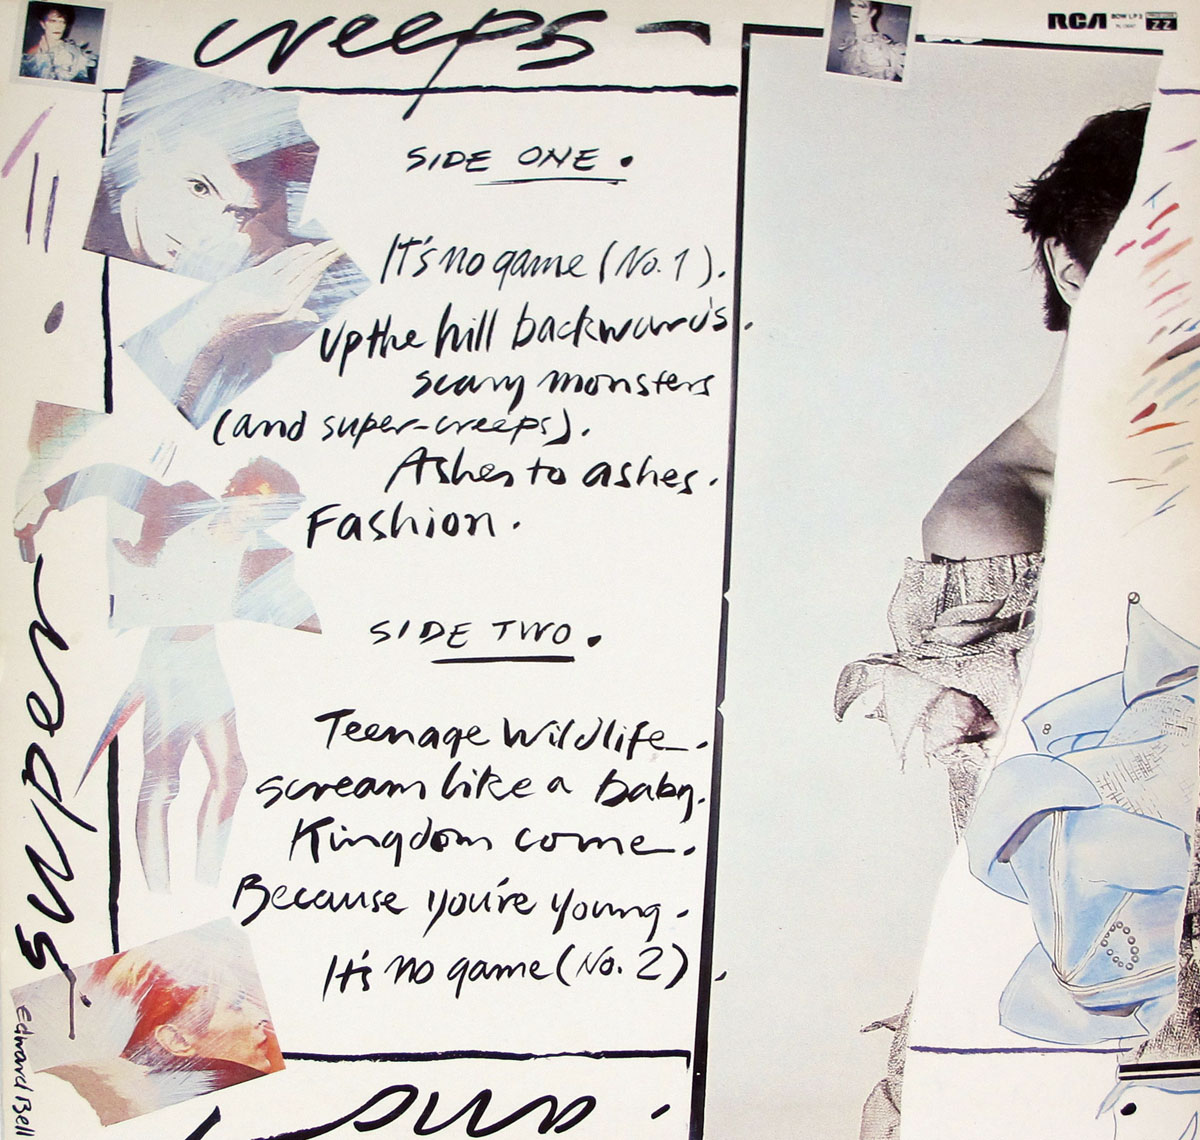 creeps
RCA BOW LP 2
22
SIDE ONE.
It's no game (No. 1).
Up the hill backwards.
scary monsters
(and super-creeps).
Ashes to ashes.
Fashion.
SIDE TWO.
Teenage Wildlife.
scream like a baby.
Kingdom come.
Because you're young.
It's no game (No. 2).
super
Edward Bell